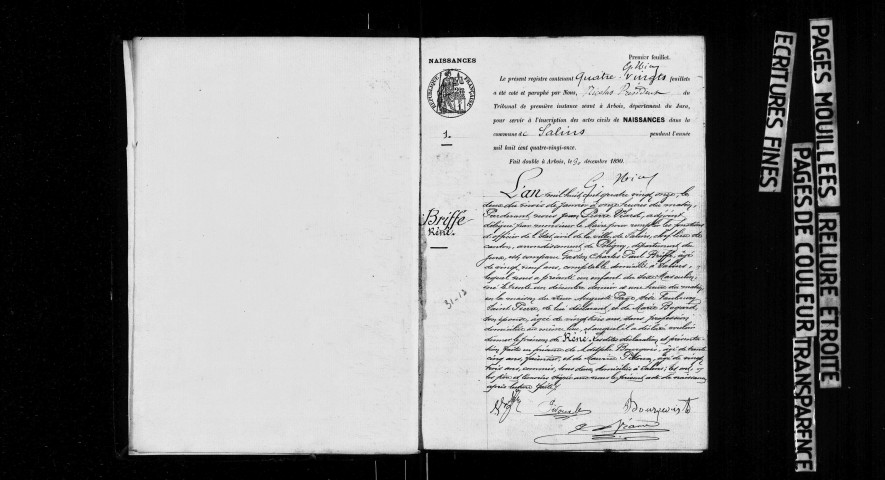 NAISSANCES
Premier feuillet.
Le présent registre contenant Quatre-Vingts feuillets
a été coté et paraphé par Nous, Président du
Tribunal de première instance séant à Arbois, département du Jura,
pour servir à l'inscription des actes civils de NAISSANCES dans la
commune de Salins pendant l'année
mil huit cent quatre-vingt-onze.
Fait double à Arbois, le décembre 1890.
RÉPUBLIQUE FRANÇAISE
1.
Briffe
Réné.
31-12
L'an mil huit cent quatre vingt onze, le
deux du mois de janvier à onze heures du matin,
Pardevant nous Jean Pierre Viard, adjoint
délégué par monsieur le Maire pour remplir les fonctions
d'officier de l'état civil de la ville de Salins, chef lieu de
canton, arrondissement de Poligny, département du
Jura, est comparu Gaston Charles Paul Briffe, âgé
de vingt neuf ans, comptable domicilié à Salins,
lequel nous a présenté un enfant du sexe masculin,
né le trente un décembre dernier à une heure du matin,
en la maison du sieur Auguste Page, sise Faubourg
Saint Pierre, de lui déclarant, et de Marie Bogard,
son épouse, âgée de vingt trois ans, sans profession,
domiciliée au même lieu, et auquel il a déclaré vouloir
donner le prénom de Réné. Lesdites déclaration et présenta-
tion faites en présence de Adolphe Bourgeois, âgé de trente
cinq ans, et de Maurice âgé de vingt
trois ans, commis, tous deux domiciliés à Salins; et ont
les père et témoins signé avec nous le présent acte de naissance
après lecture faite.
Bourgeois
Viard
PAGES MOUILLEES RELIURE ETROITE
ECRITURES FINES
PAGES DE COULEUR TRANSPARENCE